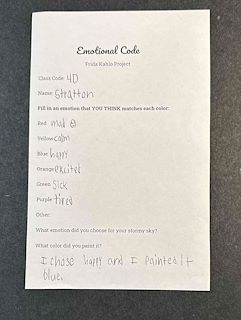 Emotional Code
Frida Kahlo Project
Class Code: 4D
Name: Stratton
Fill in an emotion that YOU THINK matches each color:
Red: mad
Yellow: calm
Blue: happy
Orange: excited
Green: Sick
Purple: tired
Other:
What emotion did you choose for your stormy sky?
What color did you paint it?
I chose happy and I painted it
blue.